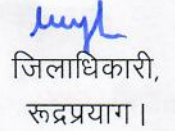 जिलाधिकारी,
रूद्रप्रयाग।